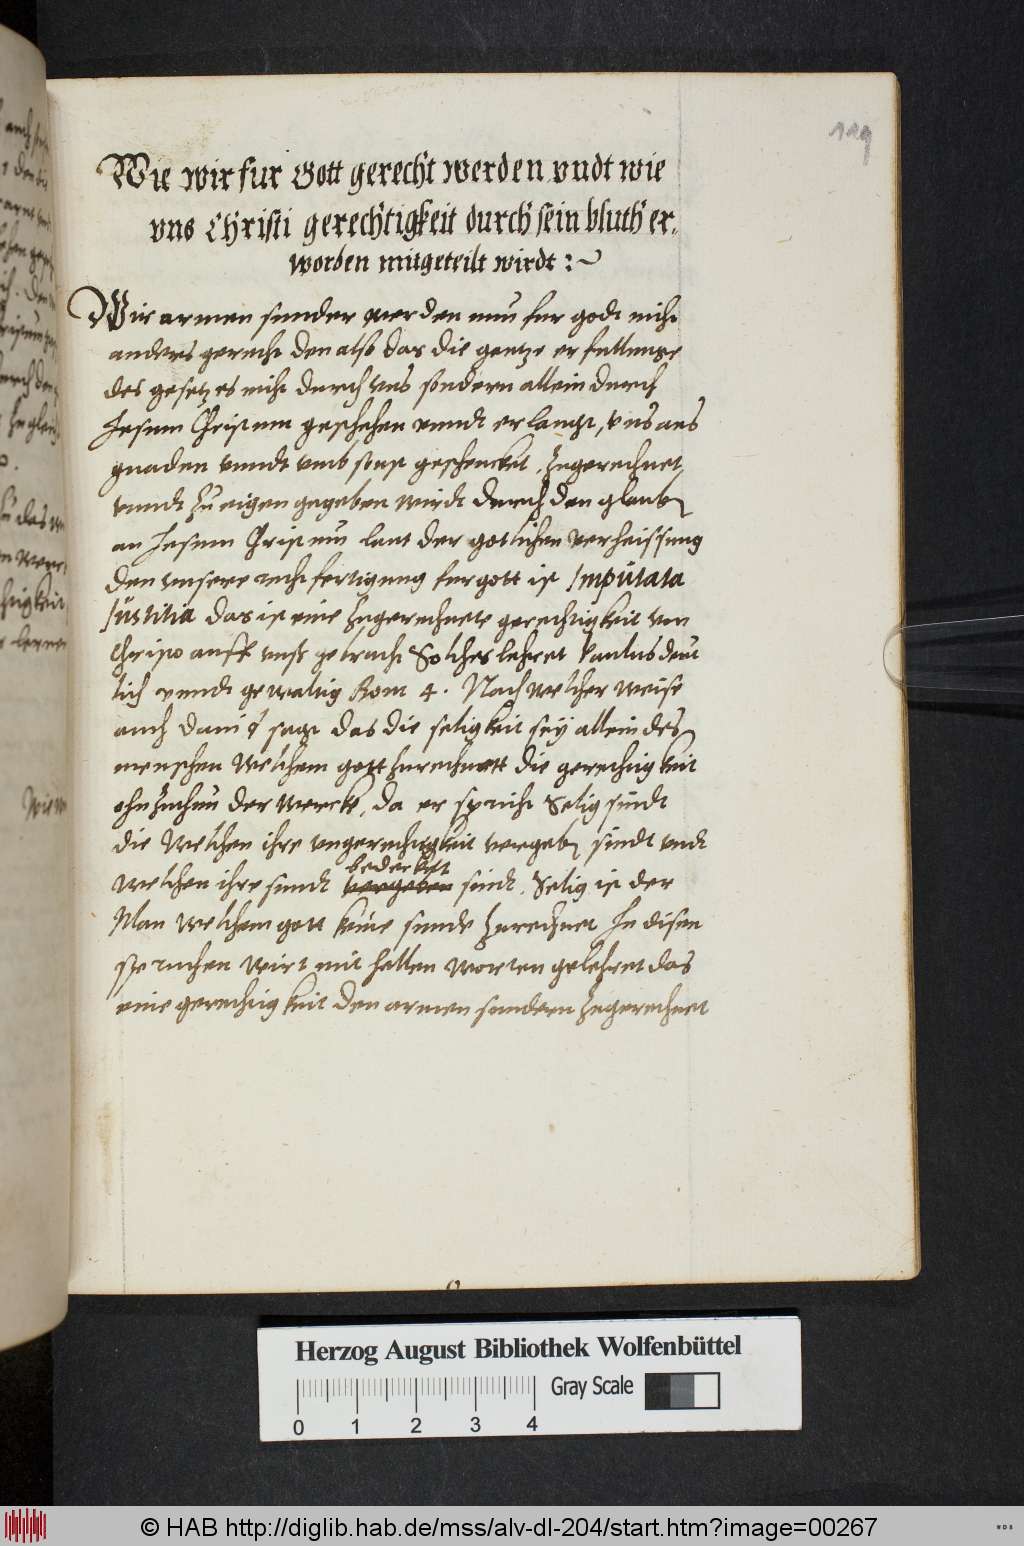 119
Wie wir fur Gott gerecht werden vndt wie
vns Christi gerechtigkeit durch sein bluth er,
worden mitgeteilt wirdt :~
Wir armen sunder werden nun fur godt nicht
anders gerecht den also das die gantze erfullunge
des gesetzes nicht durch vns sondern allein durch
Jesum Christum geschehen vnndt erlangt, vns aus
gnaden vnndt vmb sonst geschenckett, zugerechnet,
vnndt zu eigen gegeben wirdt durch den glauben
an Jesum Christum laut der gotlichen verheissung
den vnsere rechtfertigung fur gott ist Imputata
Iustitia das ist eine zugerechnete gerechtigkeit von
Christo auff vnss gebracht Solches lehret Paulus deut
lich vnndt gewaltig Rom 4. Nach welcher weise
auch Dauid sagt das die seligkeit sey allein des
menschen welchem gott zurechnett die gerechtigkeit
ohn zuthun der wercke, da er spricht Selig sindt
die welchen ihre vngerechtigkeit vergeben sindt vndt
bedeckett
welchen ihre sundt vergeben sindt, Selig ist der
Man welchem gott keine sunde zurechnet In disen
spruchen wirt mit hellen worten gelehret das
eine gerechtigkeit den armen sundern zugerechnet
Herzog August Bibliothek Wolfenbüttel
Gray Scale
0 1 2 3 4
© HAB http://diglib.hab.de/mss/alv-dl-204/start.htm?image=00267